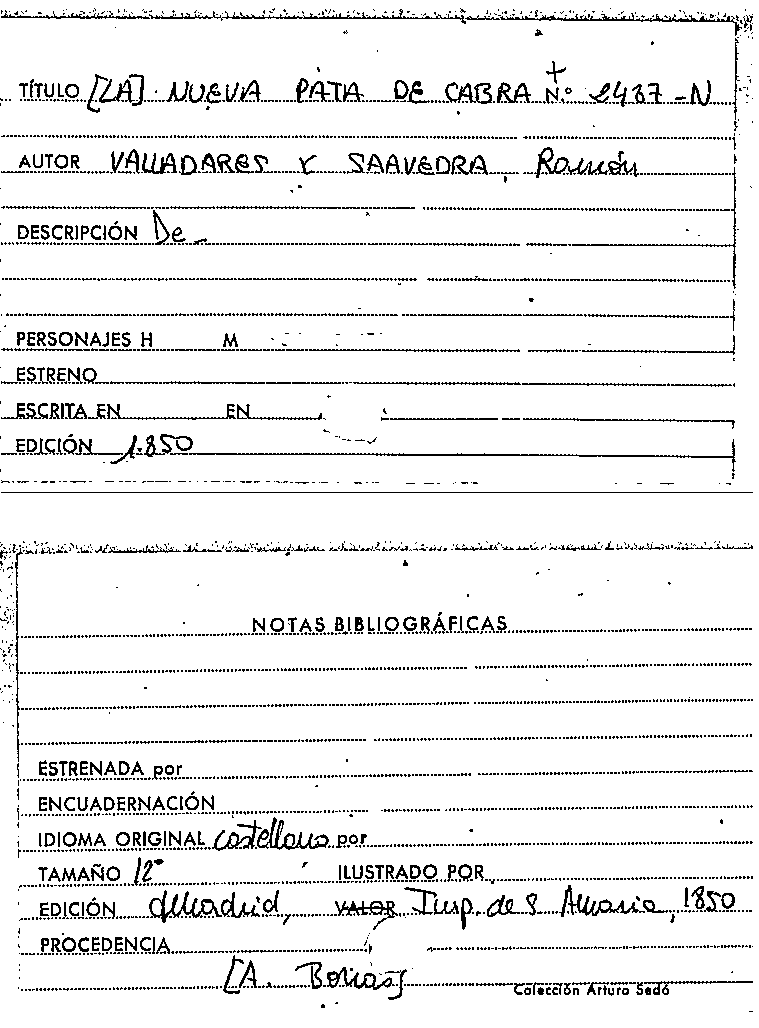 +
TÍTULO [LA] NUEVA PATA DE CABRA N.º 2487-N
AUTOR VALLADARES Y SAAVEDRA, Ramón
DESCRIPCIÓN De
PERSONAJES H M
ESTRENO
ESCRITA EN EN
EDICIÓN 1.850
NOTAS BIBLIOGRÁFICAS
ESTRENADA por
ENCUADERNACIÓN
IDIOMA ORIGINAL Castellano por
TAMAÑO 12º ILUSTRADO POR
EDICIÓN Madrid, VALOR Imp. de S 1850
PROCEDENCIA
[A.
Colección Arturo Sedó